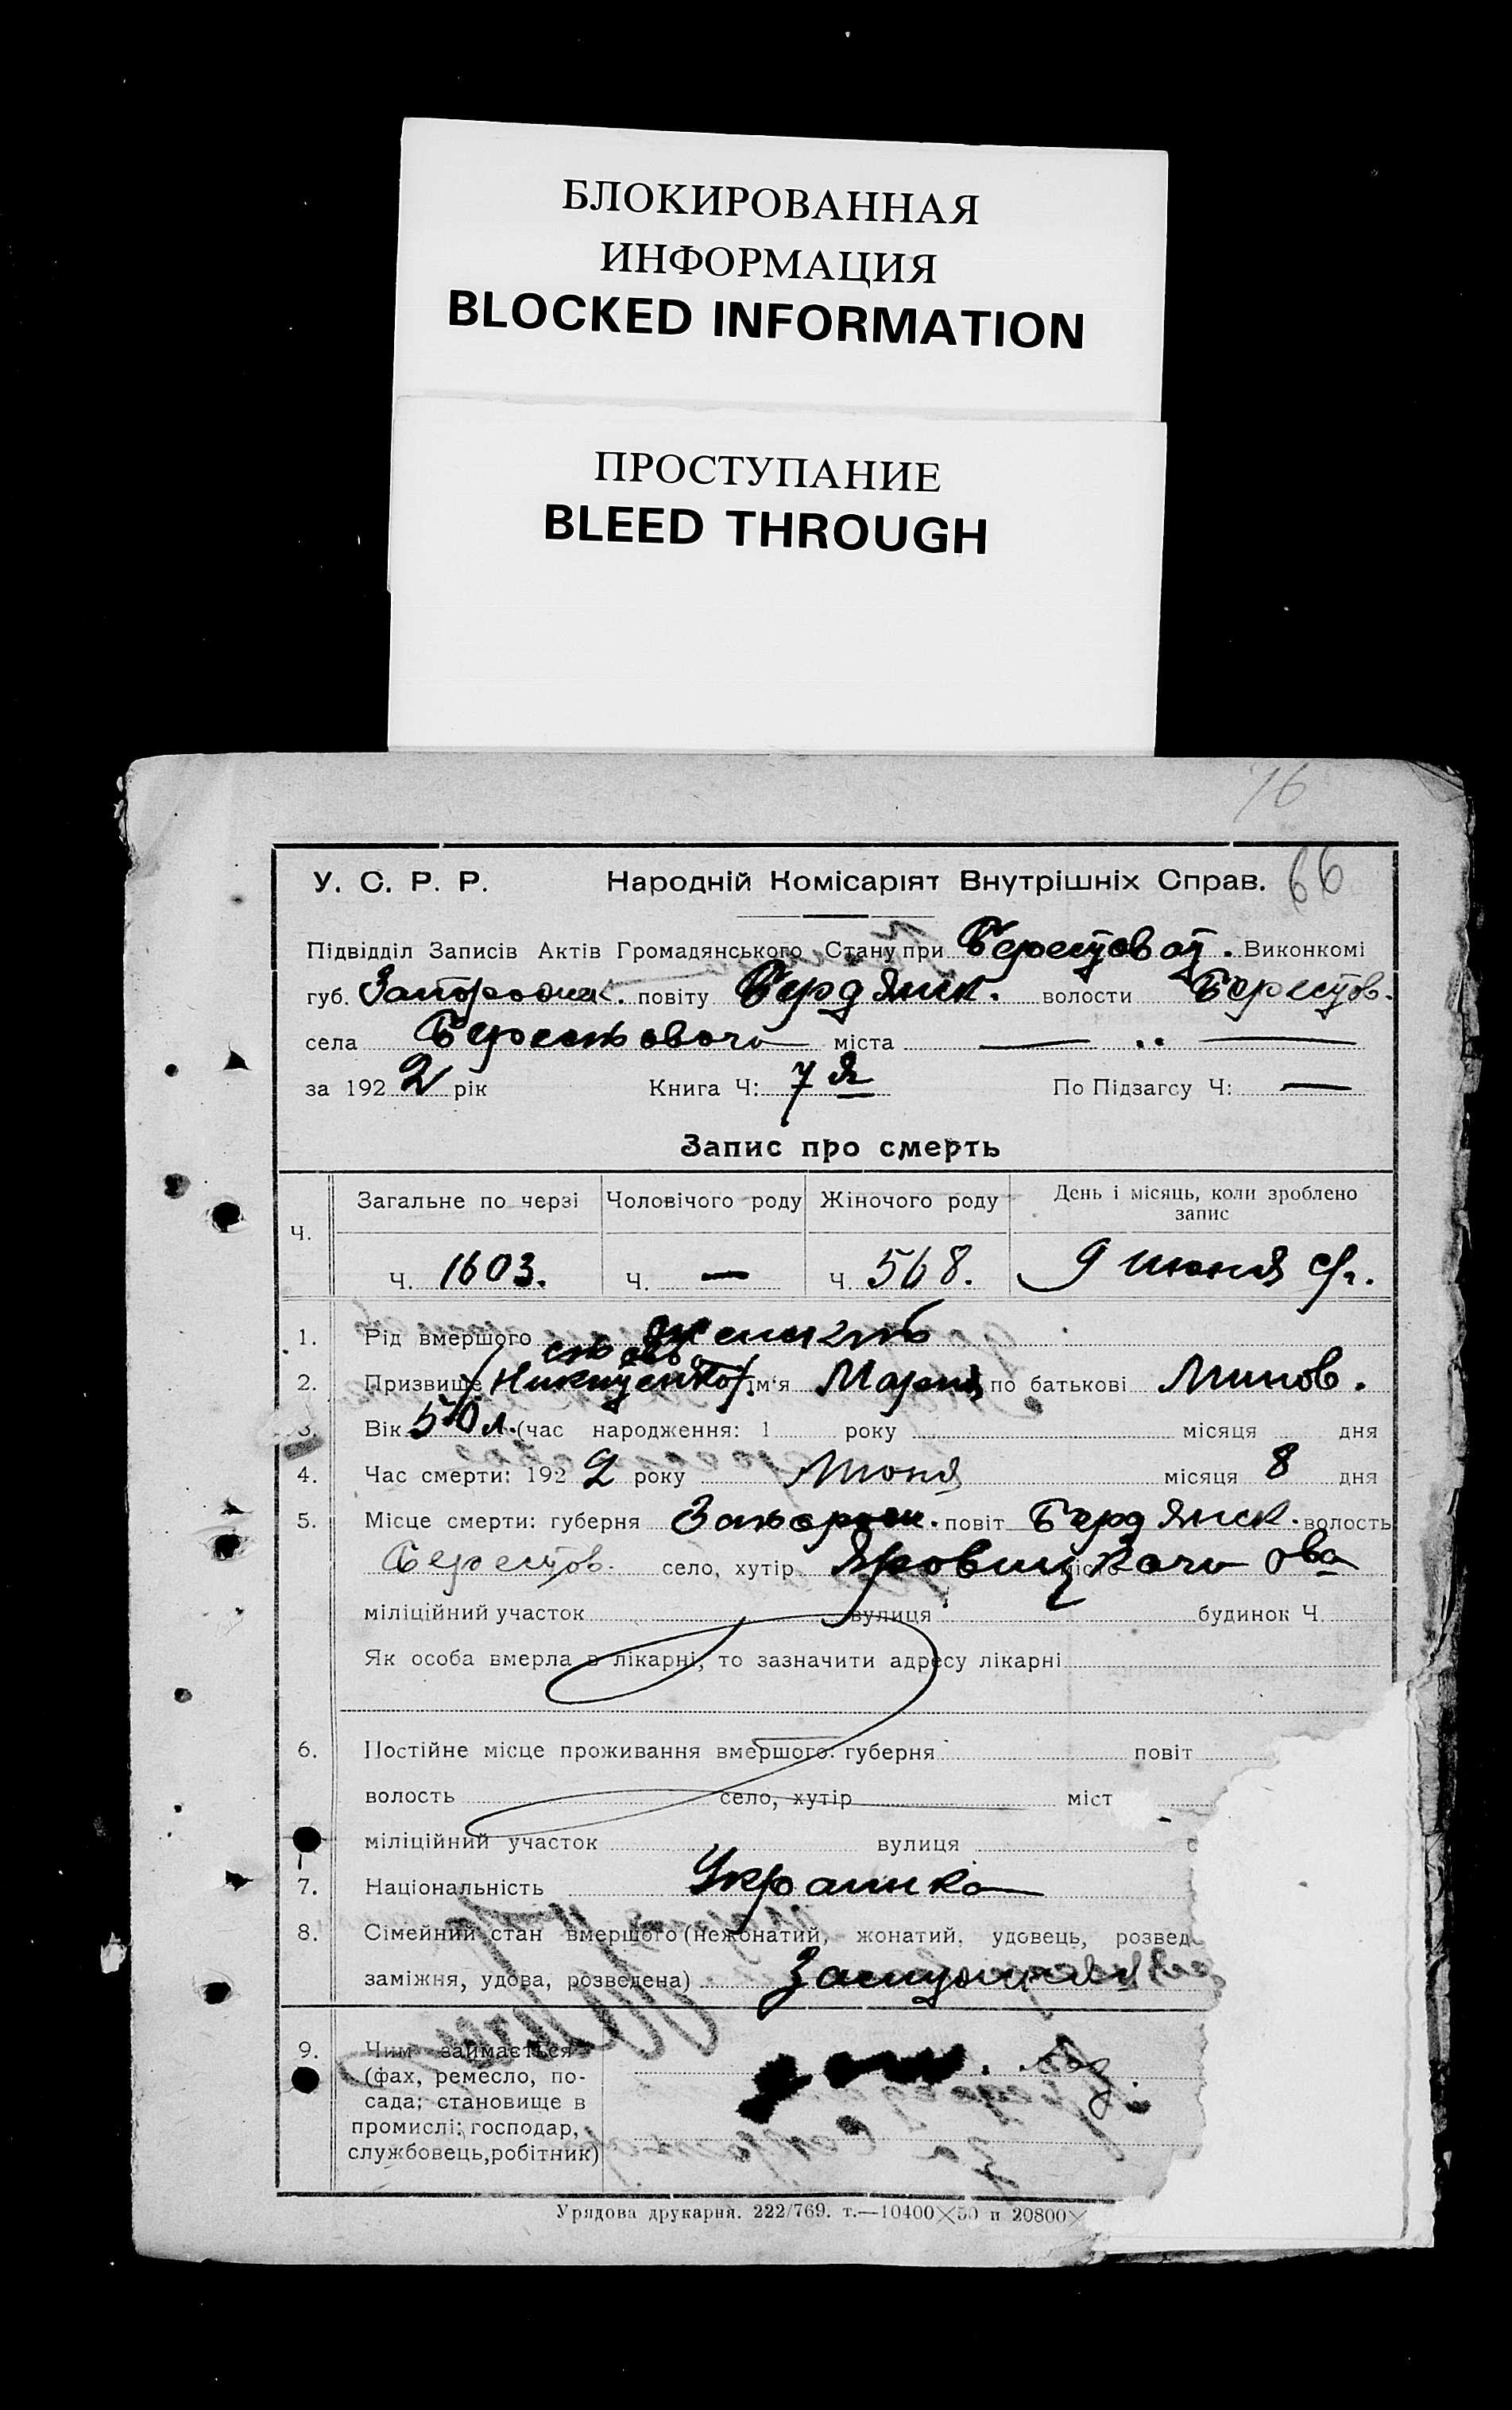 БЛОКИРОВАННАЯ
ИНФОРМАЦИЯ
BLOCKED INFORMATION
ПРОСТУПАНИЕ
BLEED THROUGH
76
66
У. С. Р. Р. Народній Комісаріят Внутрішніх Справ.
Підвідділ Записів Актів Громадянського Стану при Берестовой. Виконкомі
губ. повіту Бердянск. волости Берестов.
села Берестового міста —
за 1922 рік Книга Ч: 7 я По Підзагсу Ч: —
Запис про смерть
Ч. Загальне по черзі Чоловічого роду Жіночого роду День і місяць, коли зроблено
запис
Ч. 1603. Ч. — Ч. 568. 9 июня
1. Рід вмершого
2. Призвище ім'я Мария по батькові
3. Вік (час народження: 1 року місяця дня
4. Час смерти: 1922 року Июня місяця 8 дня
5. Місце смерти: губерня повіт Бердянск. волость
Берестов. село, хутір
міліційний участок вулиця будинок Ч.
Як особа вмерла в лікарні, то зазначити адресу лікарні
6. Постійне місце проживання вмершого: губерня повіт
волость село, хутір міст
міліційний участок вулиця
7. Національність Украинка
8. Сімейний стан вмершого (нежонатий, жонатий, удовець, розвед
заміжня, удова, розведена)
9. Чим займається
(фах, ремесло, по-
сада; становище в
промислі; господар,
службовець, робітник)
Урядова друкарня. 222/769. т.—10400×50 п 20800×